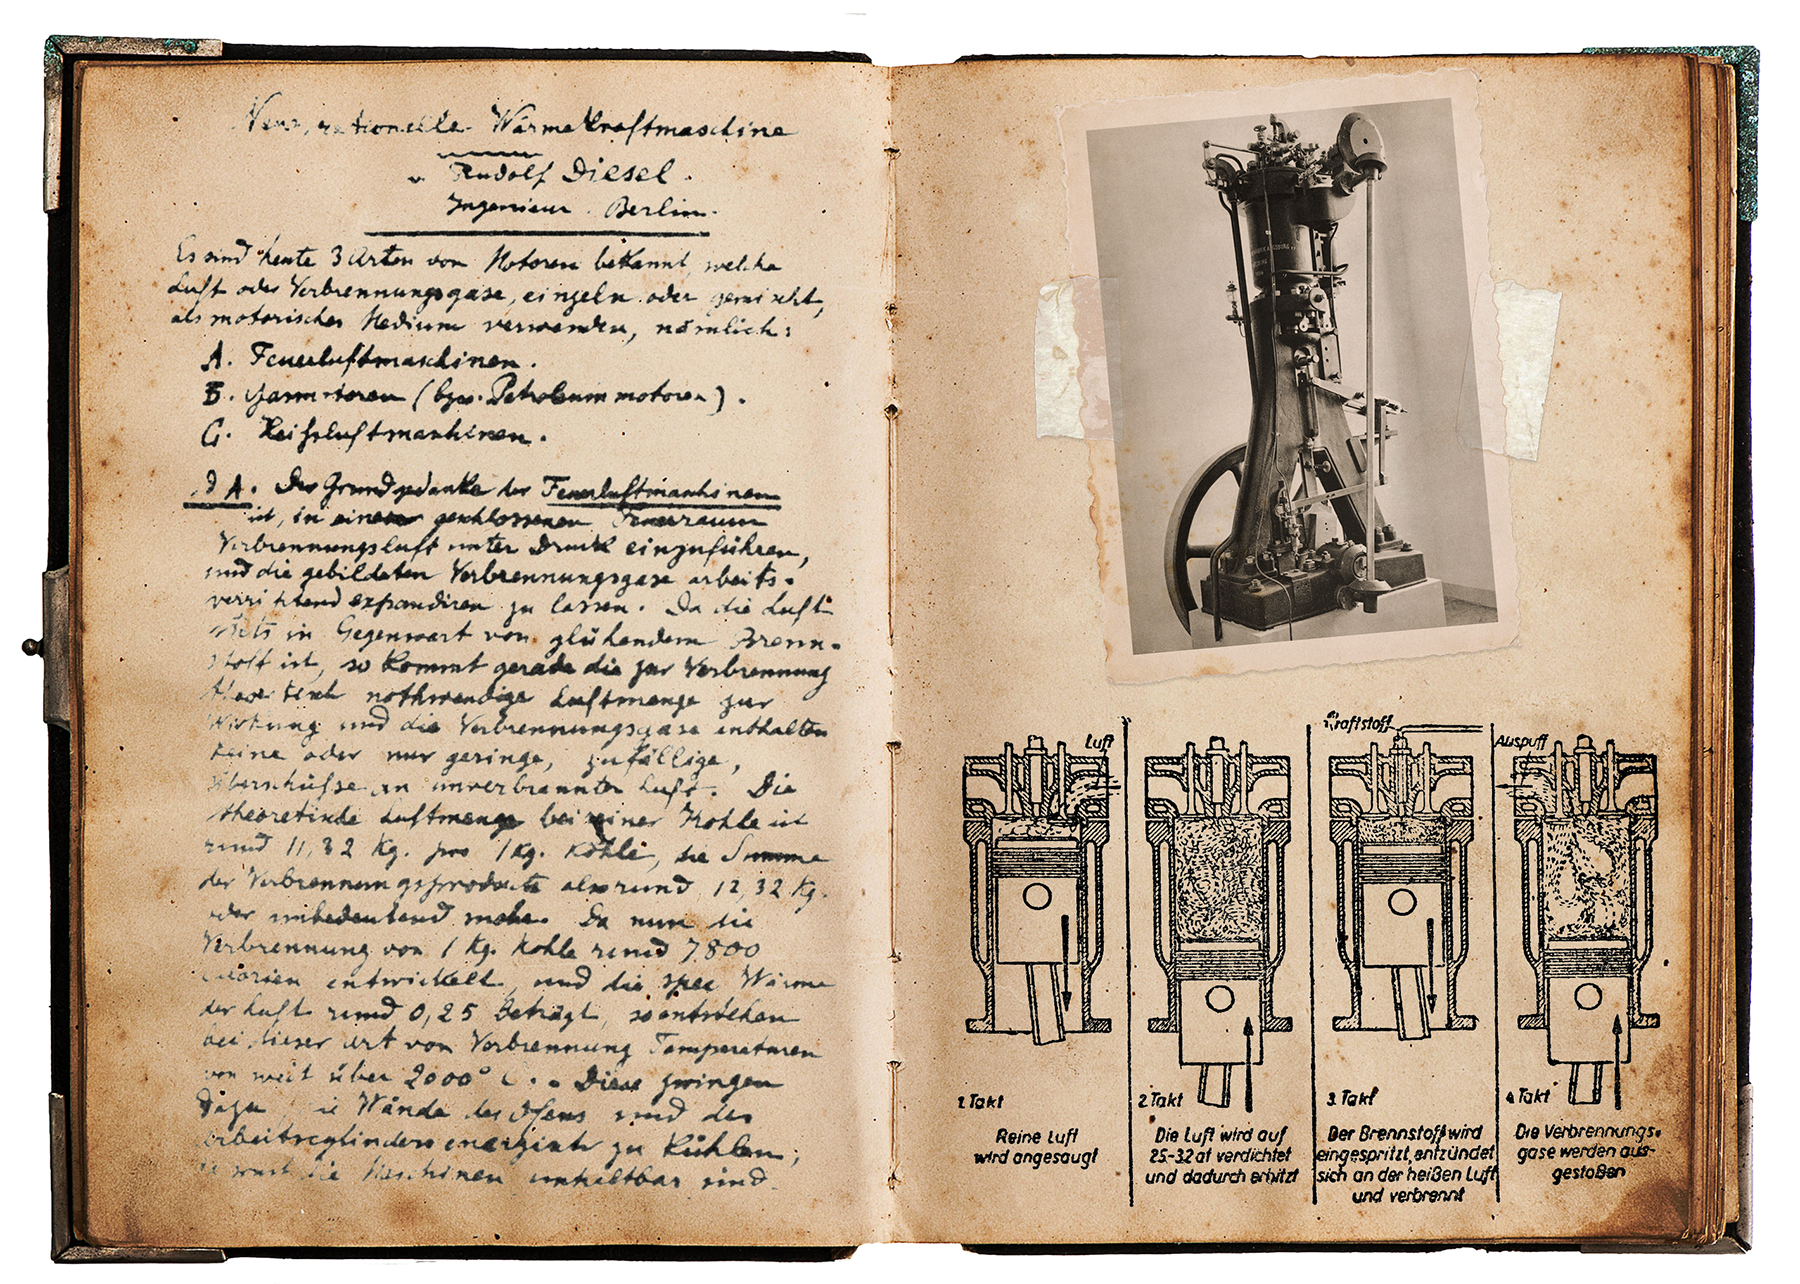 Neue, rationelle Wärmekraftmaschine
v. Rudolf Diesel.
Ingenieur. Berlin.
Es sind heute 3 Arten von Motoren bekannt, welche
Luft oder Verbrennungsgase, einzeln oder gemischt,
als motorisches Medium verwenden, nämlich:
A. Feuerluftmaschinen.
B. Gasmotoren (bzw. Petroleummotoren).
C. Heißluftmaschinen.
A. Der Grundgedanke der Feuerluftmaschinen
ist, in einem geschlossenen Feuerraum
Verbrennungsluft unter Druck einzuführen,
und die gebildeten Verbrennungsgase arbeits-
verrichtend expandiren zu lassen. Da die Luft
stets in Gegenwart von glühendem Brenn-
stoff ist, so kommt gerade die zur Verbrennung
theoretisch nothwendige Luftmenge zur
Wirkung und die Verbrennungsgase enthalten
keine oder nur geringe, zufällige,
Überschüsse an unverbrannter Luft. Die
theoretische Luftmenge bei reiner Kohle ist
rund 11,32 Kg. pro 1 Kg. Kohle, die Summe
der Verbrennungsproducte also rund 12,32 Kg.
oder unbedeutend mehr. Da nun die
Verbrennung von 1 Kg. Kohle rund 7800
Calorien entwickelt, und die spec Wärme
der Luft rund 0,25 beträgt, so entstehen
bei dieser Art von Verbrennung Temperaturen
von weit über 2000° C. - Diese zwingen
dazu, die Wände des Ofens und des
Arbeitscylinders energisch zu kühlen,
da sonst die Maschinen unhaltbar sind.
Luft
Kraftstoff
Auspuff
1. Takt
Reine Luft
wird angesaugt
2. Takt
Die Luft wird auf
25-32 at verdichtet
und dadurch erhitzt
3. Takt
Der Brennstoff wird
eingespritzt, entzündet
sich an der heißen Luft
und verbrennt
4. Takt
Die Verbrennungs-
gase werden aus-
gestoßen